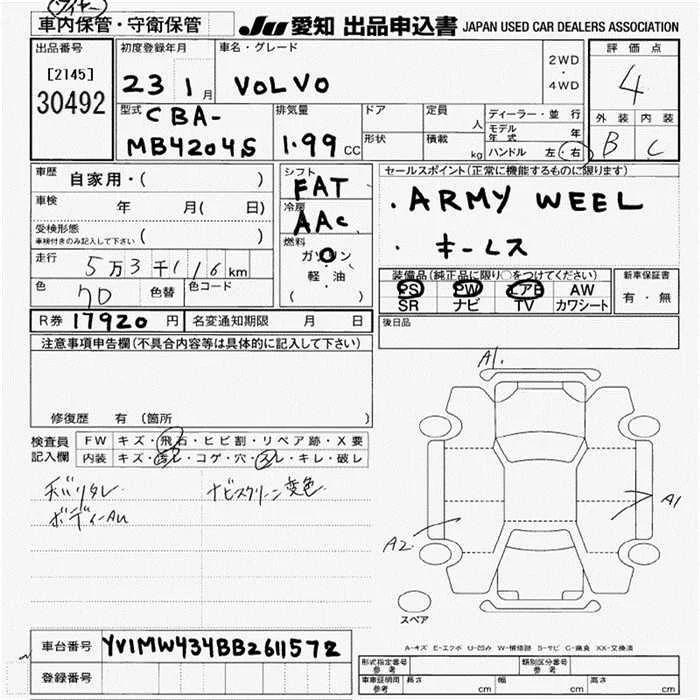 車内保管・守衛保管
JU 愛知 出品申込書 JAPAN USED CAR DEALERS ASSOCIATION
出品番号
[2145]
30492
初度登録年月
23 1月
車名・グレード
VOLVO
2WD
・
4WD
評価点
4
外装 内装
B C
型式
CBA-
MB4204S
排気量
1.99 CC
ドア
形状
定員
人
積載
kg
ディーラー・並行
モデル年式 年
ハンドル 左・右
車歴 自家用・( )
車検 年 月( 日)
受検形態
車検付きのみ記入して下さい ( )
走行 5万3千116km
色 70 色替 色コード
シフト
FAT
冷房
AAC
燃料
ガソリン
・
軽・油
( )
セールスポイント(正常に機能するものに限ります)
・ARMY WEEL
・キーレス
装備品(純正品に限り○をつけてください)
PS PW エアB AW
SR ナビ TV カワシート
新車保証書
有・無
R券 17920円 名変通知期限 月 日
後日品
注意事項申告欄(不具合内容等は具体的に記入して下さい)
修復歴 有 (箇所 )
検査員
記入欄
FW キズ・飛石・ヒビ割・リペア跡・X要
内装 キズ・汚レ・コゲ・穴・スレ・キレ・破レ
天バリタレ
ナビスクリーン変色
ボディーAU
A1.
A1
A2.
スペア
A-キズ E-エクボ U-凹み W-補修跡 S-サビ C-腐食 XX-交換済
車台番号 YV1MW434BB2611572
登録番号
型式指定番号
参考
類別区分番号
参考
車庫証明用
参考
長さ cm 幅 cm 高さ cm